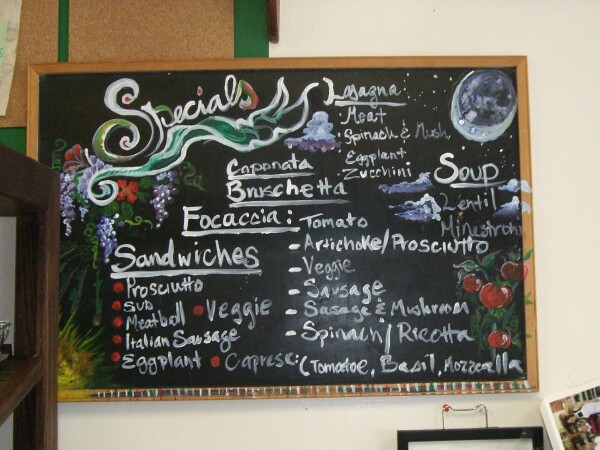 Specials
Lasagna:
Meat
Spinach & Mush
Eggplant
Zucchini
Caponata
Bruschetta
Soup
Lentil
Minestroni
Focaccia: Tomato
- Artichoke/Prosciutto
- Veggie
- Sausage
- Sasage & Mushroom
- Spinach/Ricotta
Sandwiches
Prosciutto
Sub
Meatball Veggie
Italian Sausage
Eggplant Caprese: (Tomatoe, Basil, Mozzarella